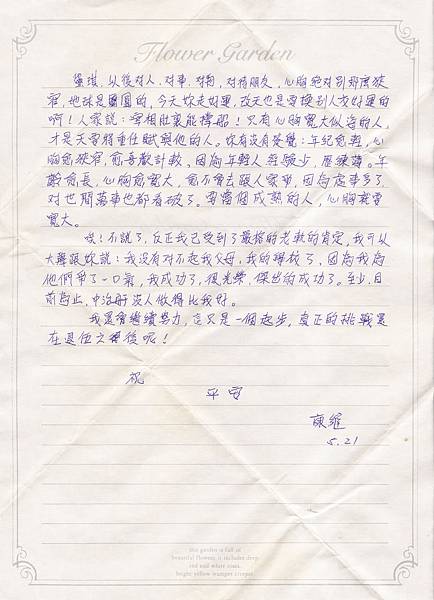 Flower Garden
蛋琪，以後对人、对事、对狗，对待朋友，心胸絕对別那麼狹
窄，地球是圓的，今天妳走好運，改天也是要換別人交好運的
啊！人家說：宰相肚裏能撐船！只有心胸寬大似海的人，
才是天要將重任賦與他的人。妳有沒有發覺：年紀愈輕，心
胸愈狹窄，愈喜歡計較、因為年輕人經驗少，歷練薄。年
齡愈長，心胸愈寬大，愈不會去跟人家爭，因為處事多了，
对世間萬事也都看破了。要當個成熟的人，心胸就要
寬大。
唉！不說了，反正我已受到了嚴格的考驗的肯定，我可以
大聲跟妳說：我沒有对不起我父母，我的學校了，因為我為
他們爭了一口氣，我成功了，很光榮、傑出的成功了。至少，目
前為止，中沒有人做得比我好。
我還會繼續努力，這只是一個起步，真正的挑戰是
在退伍之後呢！
祝
平安
5.21
this garden is full of
beautiful flowers. it includes deep
red and white roses,
bright yellow trumpet creeper